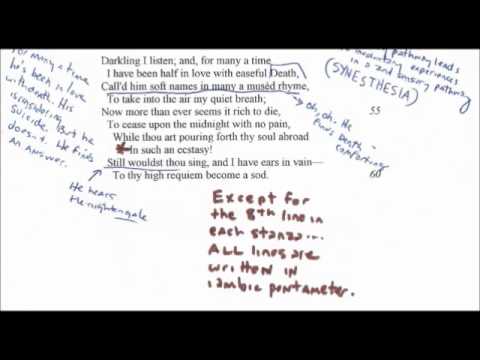 For many a time
he's been in love
with death. His
considering
Suicide. But he
doesn't. He finds
An ANSWER.
pathway leads
to involuntary experiences
in a 2nd sensory pathway
(SYNESTHESIA)
Darkling I listen; and, for many a time
I have been half in love with easeful Death,
Call'd him soft names in many a musèd rhyme,
To take into the air my quiet breath;
55
Now more than ever seems it rich to die,
To cease upon the midnight with no pain,
While thou art pouring forth thy soul abroad
In such an ecstasy!
Still wouldst thou sing, and I have ears in vain—
To thy high requiem become a sod.
60
Uh oh. He
finds Death -
comforting
He hears
the nightengale
Except for
the 8th line in
each stanza...
ALL lines are
written in
iambic pentameter.